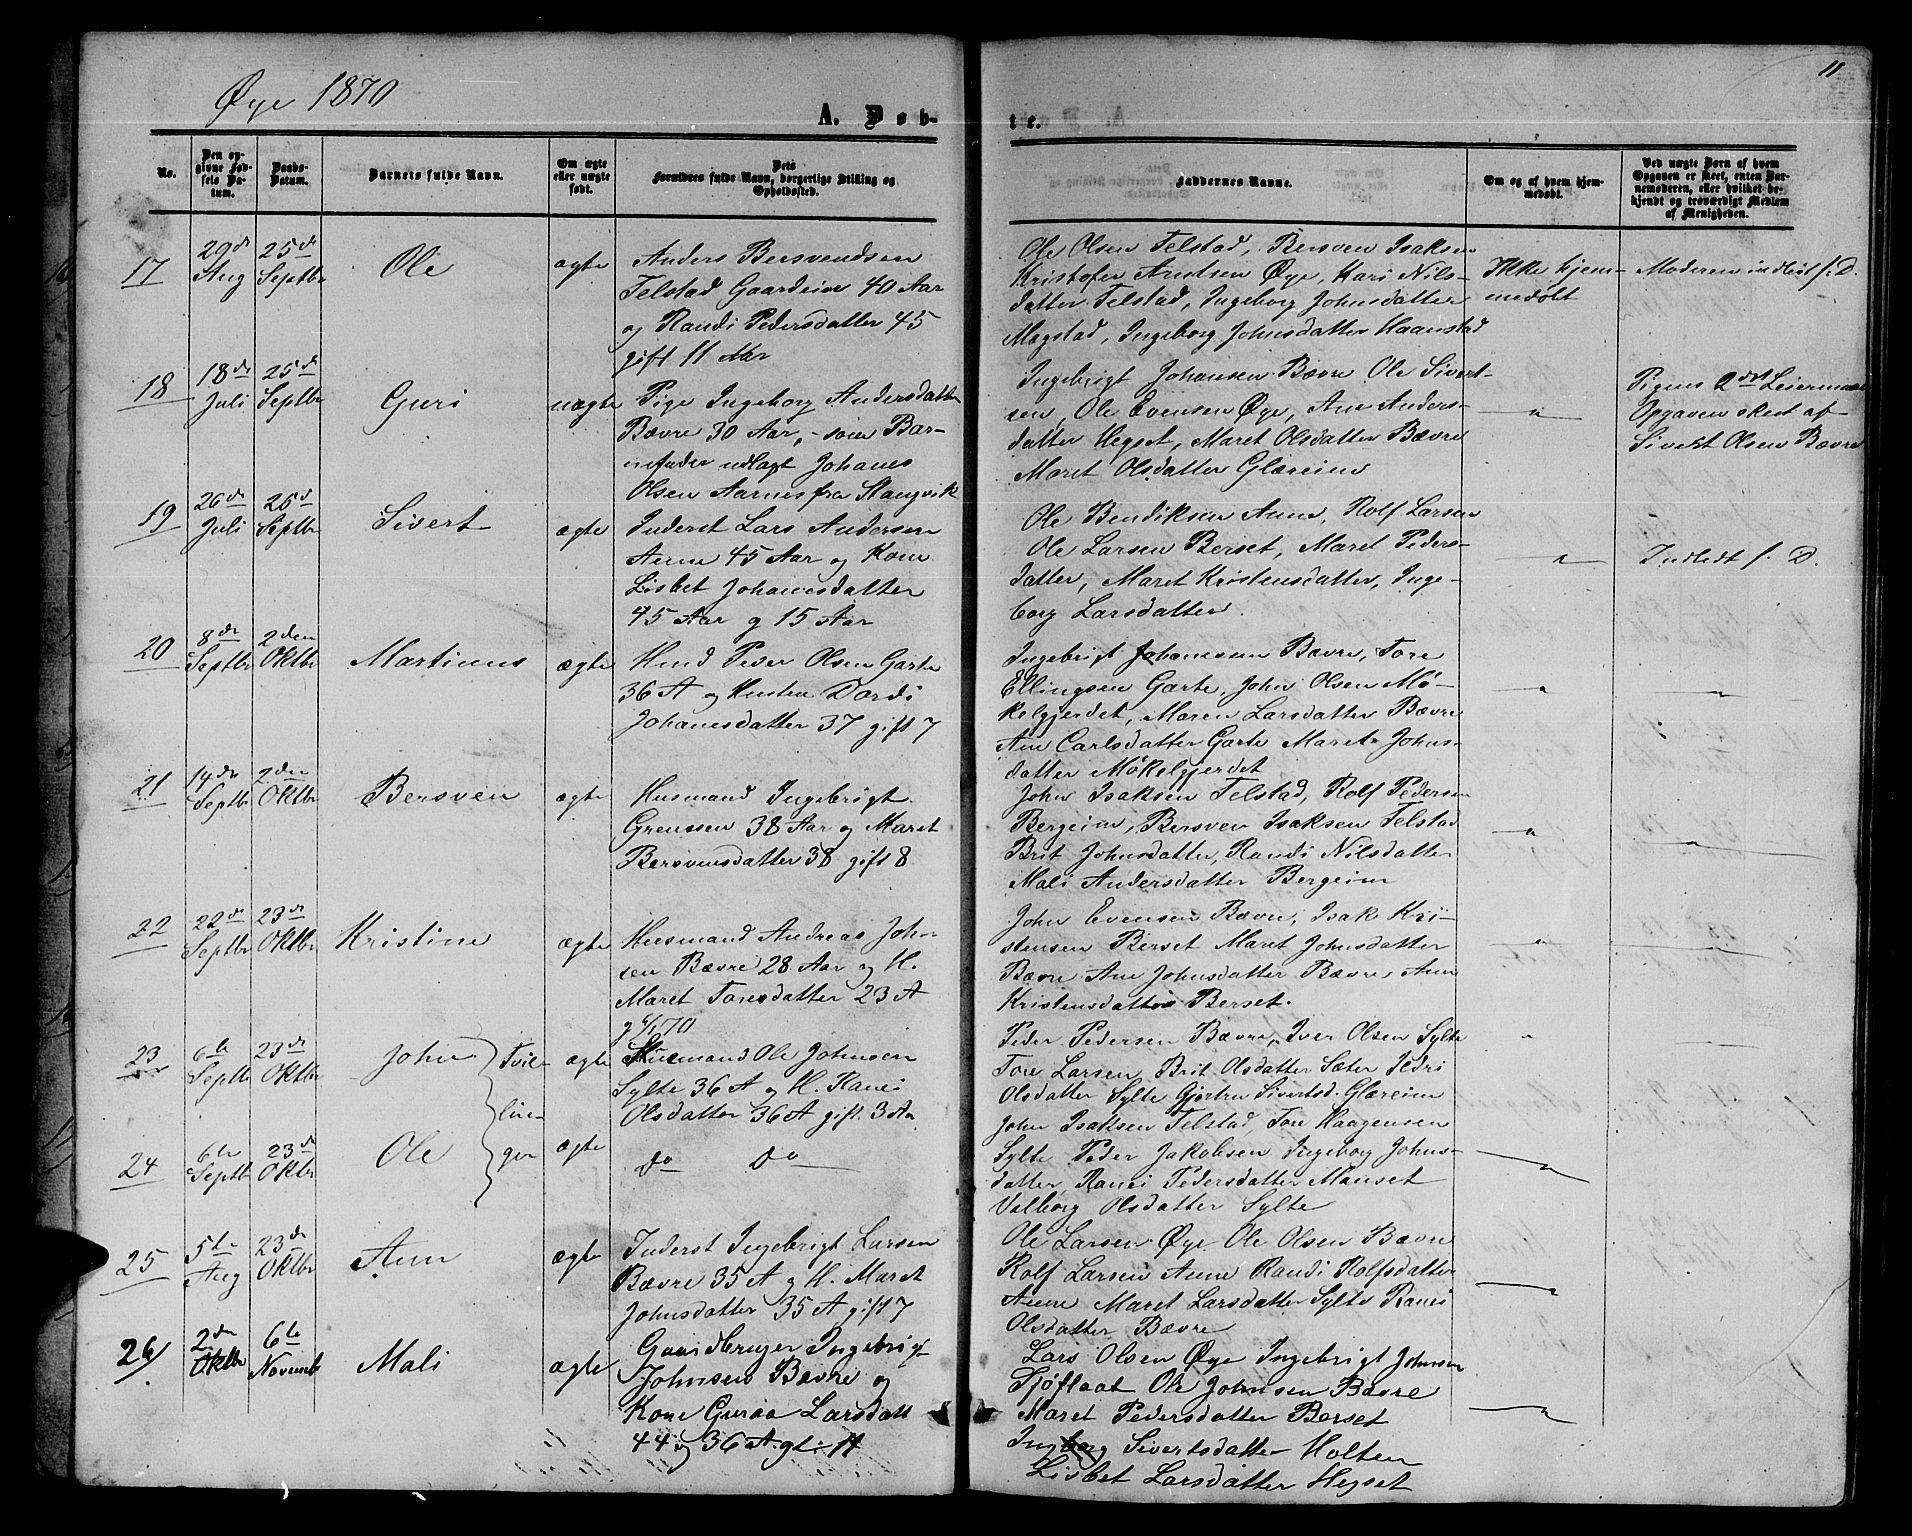 Øye 1870
11
A. Døb-
te.
No.
Den op-
givne Fød-
sels Da-
tum.
Daabs-
Datum.
Barnets fulde Navn.
Om ægte
eller uægte
født.
Dets
Forældres fulde Navn, borgerlige Stilling og
Opholdssted.
Faddernes Navne.
Om og af hvem hjem-
medøbt.
Ved uægte Børn af hvem
Opgaven er skeet, enten Bar-
nemoderen, eller hvilket be-
kjendt og troværdigt Medlem
af Menigheden.
17
29de
Aug
25de
Septbr
Ole
ægte
Anders Bersvendsen
Telstad Gaardeier 40 Aar
og Randi Pedersdatter 45
gift 11 Aar
Ole Olsen Telstad, Bersven Isaksen
Kristofer Arntsen Øye, Kari Nils-
datter Telstad, Ingeborg Johnsdatter
Mogstad, Ingeborg Johnsdatter Haanstad
Ikke hjem-
medøbt
Moderen indledt f. D.
18
18de
Juli
25de
Septbr
Guri
uægte
Pige Ingeborg Andersdatter
Bævre 30 Aar, - som Bar-
nefader udlagt Johanes
Olsen Aarnes fra Stangvik
Ingebrigt Johansen Bævre Ole Sivert-
sen, Ole Evensen Øye, Ane Anders-
datter Hegset, Maret Olsdatter Bævre
Maret Olsdatter Glæreim
"
Pigens 2det Leiermaal
Opgaven skeet af
Sivert Olsen Bævre
19
26de
Juli
25de
Septbr
Sivert
ægte
Inderst Lars Andersen
Aune 45 Aar og Kone
Lisbet Johanesdatter
45 Aar g 15 Aar
Ole Bendiksen Aune, Rolf Larsen
Ole Larsen Berset, Maret Peders-
datter, Maret Kristensdatter, Inge-
borg Larsdatter.
"
Indledt f. D.
20
8de
Septbr
2den
Oktbr
Martinus
ægte
Husd Peder Olsen Garte
36 A og Hustru Dordi
Johanesdatter 37 gift 7
Ingebrigt Johannesen Bævre, Tore
Ellingsen Garte, John Olsen Mø-
kelgjerdet, Maren Larsdatter Bævre
Ane Carlsdatter Garte Maret Johns-
datter Møkelgjerdet
"
"
21
14de
Septbr
2den
Oktbr
Bersven
ægte
Husmand Ingebrigt
Grenssen 38 Aar og Maret
Bersvensdatter 38 gift 8
John Isaksen Telstad, Rolf Pedersen
Bergeim, Bersven Isaksen Telstad
Brit Johnsdatter, Randi Nilsdatter
Mali Andersdatter Bergeim
"
"
22
22de
Septbr
23de
Oktbr
Kristine
ægte
Husmand Andreas John-
sen Bævre 28 Aar og H.
Maret Toresdatter 23 A
g 6/1 70
John Evensen Bævre, Isak Kri-
stensen Berset Maret Johnsdatter
Bævre Ane Johnsdatter Bævre, Ane
Kristensdatter Berset.
"
"
23
6te
Septbr
23de
Oktbr
John
Tvil-
lin-
ger
ægte
Husmand Ole Johnsen
Sylte 36 A og H. Ranei
Olsdatter 36 A gift 3 Aar
Peder Pedersen Bævre, Iver Olsen Sylte
Tore Larsen, Brit Olsdatter Sæter Ildri
Olsdatter Sylte Gjertru Sivertsd. Glæreim
"
24
6te
Septbr
23de
Oktbr
Ole
ægte
Do Do
John Isaksen Telstad, Tore Haagensen
Sylte Peder Jakobsen Ingeborg Johns-
datter, Ranei Pedersdatter Mauset
Valborg Olsdatter Sylte
"
25
5te
Aug
23de
Oktbr
Ane
ægte
Inderst Ingebrigt Larsen
Bævre 35 A og H. Maret
Johnsdatter 35 A gift 7
Ole Larsen Øye Ole Olsen Bævre
Rolf Larsen Aune Randi Rolfsdatter
Aune Maret Larsdatter Sylte Ranei
Olsdatter Bævre
"
26
2den
Oktbr
6te
Novemb
Mali
ægte
Gaardbruger Ingebrig-
Johnsen Bævre og
Kone Guroe Larsdatt
44 og 36 A. gt. 11
Lars Olsen Øye Ingebrigt Johnsen
Tjøflaat Ole Johnsen Bævre
Maret Pedersdatter Berset
Ingeborg Sivertsdatter Holten
Lisbet Larsdatter Hegset
"